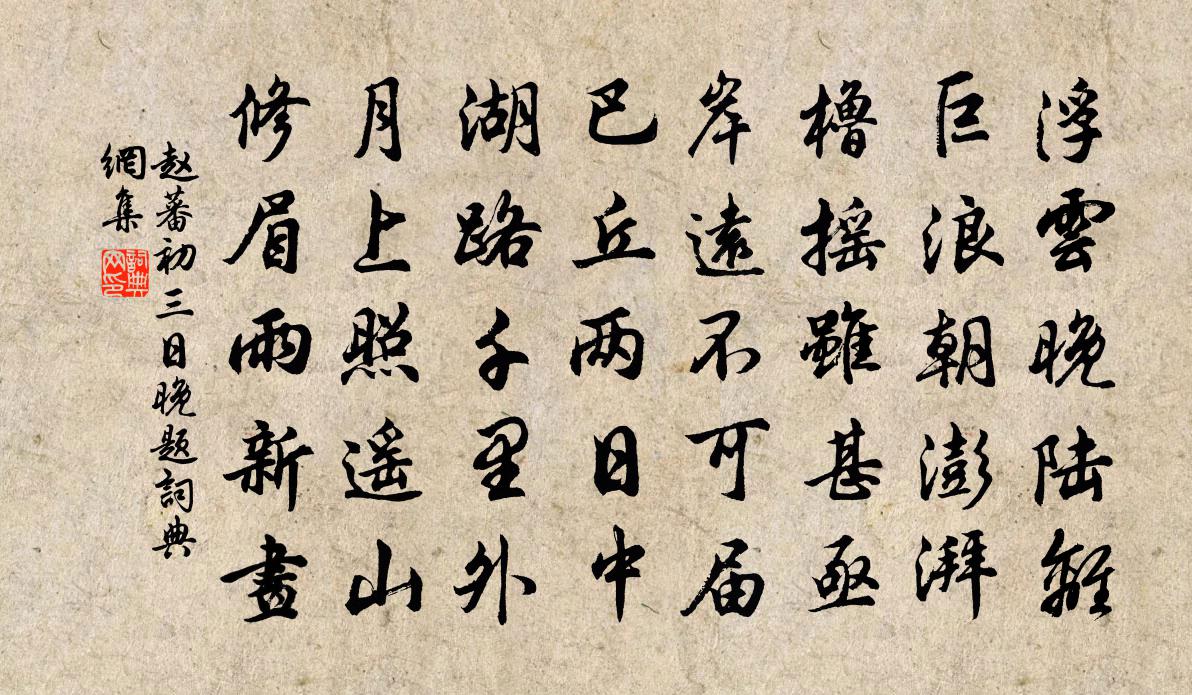 浮雲晚陆離
巨浪朝澎湃
櫓摇雖甚亟
岸遠不可届
巴丘两日中
湖路千里外
月上照遥山
修眉兩新畫
赵蕃初三日晚题詞典
網集
詞典
网印